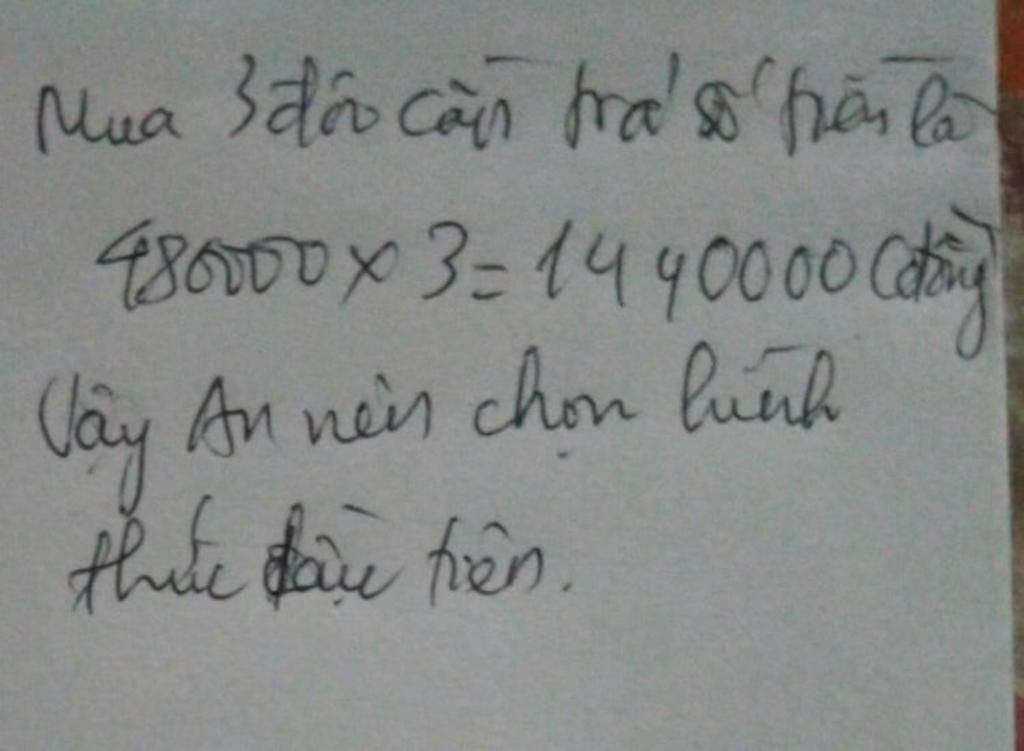 Mua 3 đôi cần trả số tiền là
480000 x 3 = 1440000 (đồng)
Vậy An nên chọn hình
thức đầu tiên.